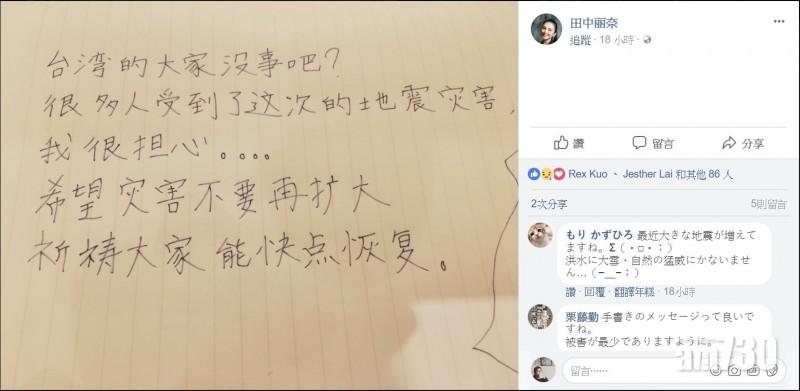 台湾的大家没事吧?
很多人受到了这次的地震灾害,
我很担心....
希望灾害不要再扩大
祈祷大家能快点恢复。
田中丽奈
追蹤 · 18 小時 ·
讚 留言 分享
Rex Kuo、Jesther Lai 和其他 86 人
2次分享 5則留言
もり かずひろ 最近大きな地震が増えて
ますね。Σ(・□・;)
洪水に大雪、自然の猛威にかないませ
ん…(−__−;)
讚 · 回覆 · 翻譯年糕 · 18小時
栗藤勤 手書きのメッセージって良いで
すね。
被害が最少でありますように。
留言……
am730